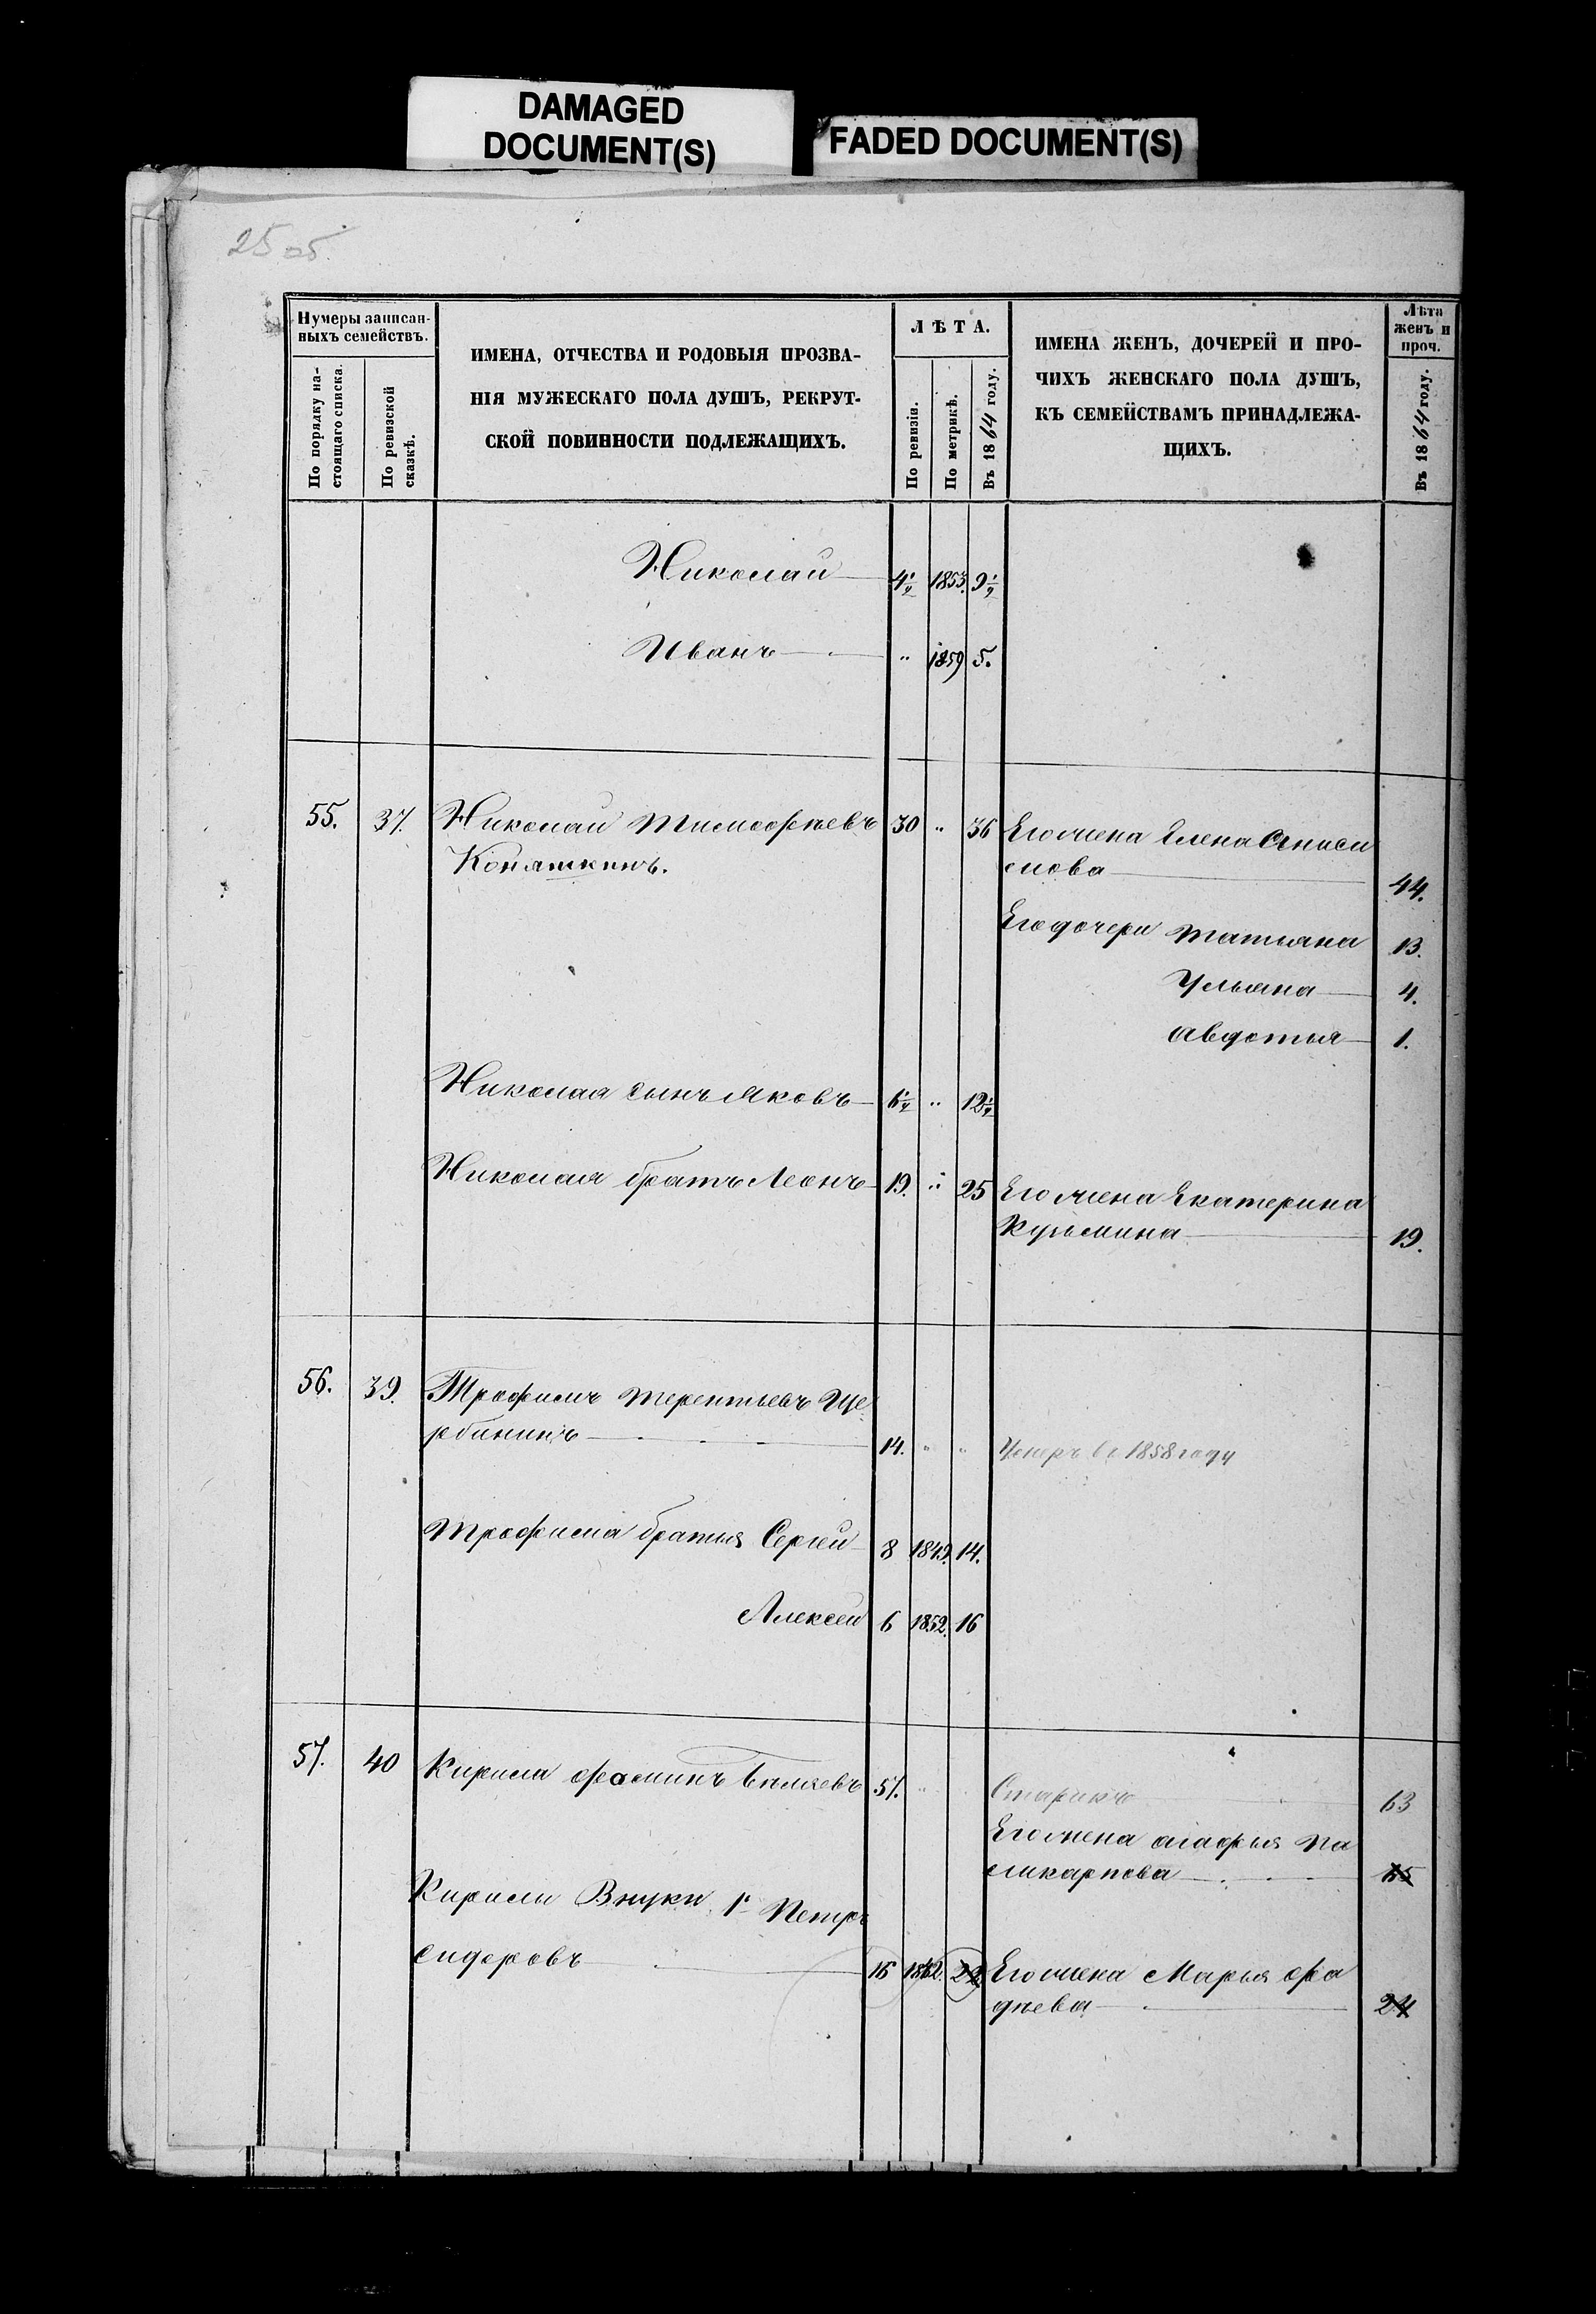 DAMAGED
DOCUMENT(S)
FADED DOCUMENT(S)
25 об.
Нумеры записан-
ныхъ семействъ.
По порядку на-
стоящаго списка.
По ревизской
сказкѣ.
ИМЕНА, ОТЧЕСТВА И РОДОВЫЯ ПРОЗВА-
НІЯ МУЖЕСКАГО ПОЛА ДУШЪ, РЕКРУТ-
СКОЙ ПОВИННОСТИ ПОДЛЕЖАЩИХЪ.
ЛѢТА.
По ревизіи.
По метрикѣ.
Въ 1864 году.
ИМЕНА ЖЕНЪ, ДОЧЕРЕЙ И ПРО-
ЧИХЪ ЖЕНСКАГО ПОЛА ДУШЪ,
КЪ СЕМЕЙСТВАМЪ ПРИНАДЛЕЖА-
ЩИХЪ.
Лѣта
женъ и
проч.
Въ 1864 году.
Николай 1853.
Иванъ " 1859 5.
55. 37. Николай Тимофѣевъ 30 " 36 Его жена Елена Аниси
Коняшкинъ. мова 44.
Его дочери Татьяна 13.
Ульяна 4.
Авдотья 1.
Николая сынъ Яковъ "
Николая братъ Леонъ 19. " 25 Его жена Екатерина
Кузьмина 19.
56. 39. Трофимъ Терентьевъ Ще
рбининъ 14. " " Умеръ въ 1858 году
Трофима братья Сергей 8 1849. 14.
Алексей 6 1852. 16
57. 40 Кирила Фоминъ 57. Старикъ 63
Его жена Агафья По
ликарпова
Кирилы Внуки 1й Петръ
Сидоровъ 22 Его жена Марья Фа
дѣева 24